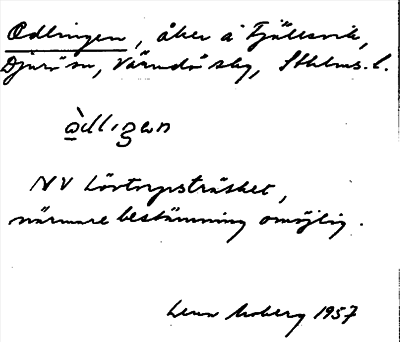 Odlingen, åker å Fjällsvik,
Djurö sn, Värmdö skg, Sthlms. l.
òdligan
NV Lövtorpsträsket,
närmare bestämning omöjlig.
Lena Moberg 1957